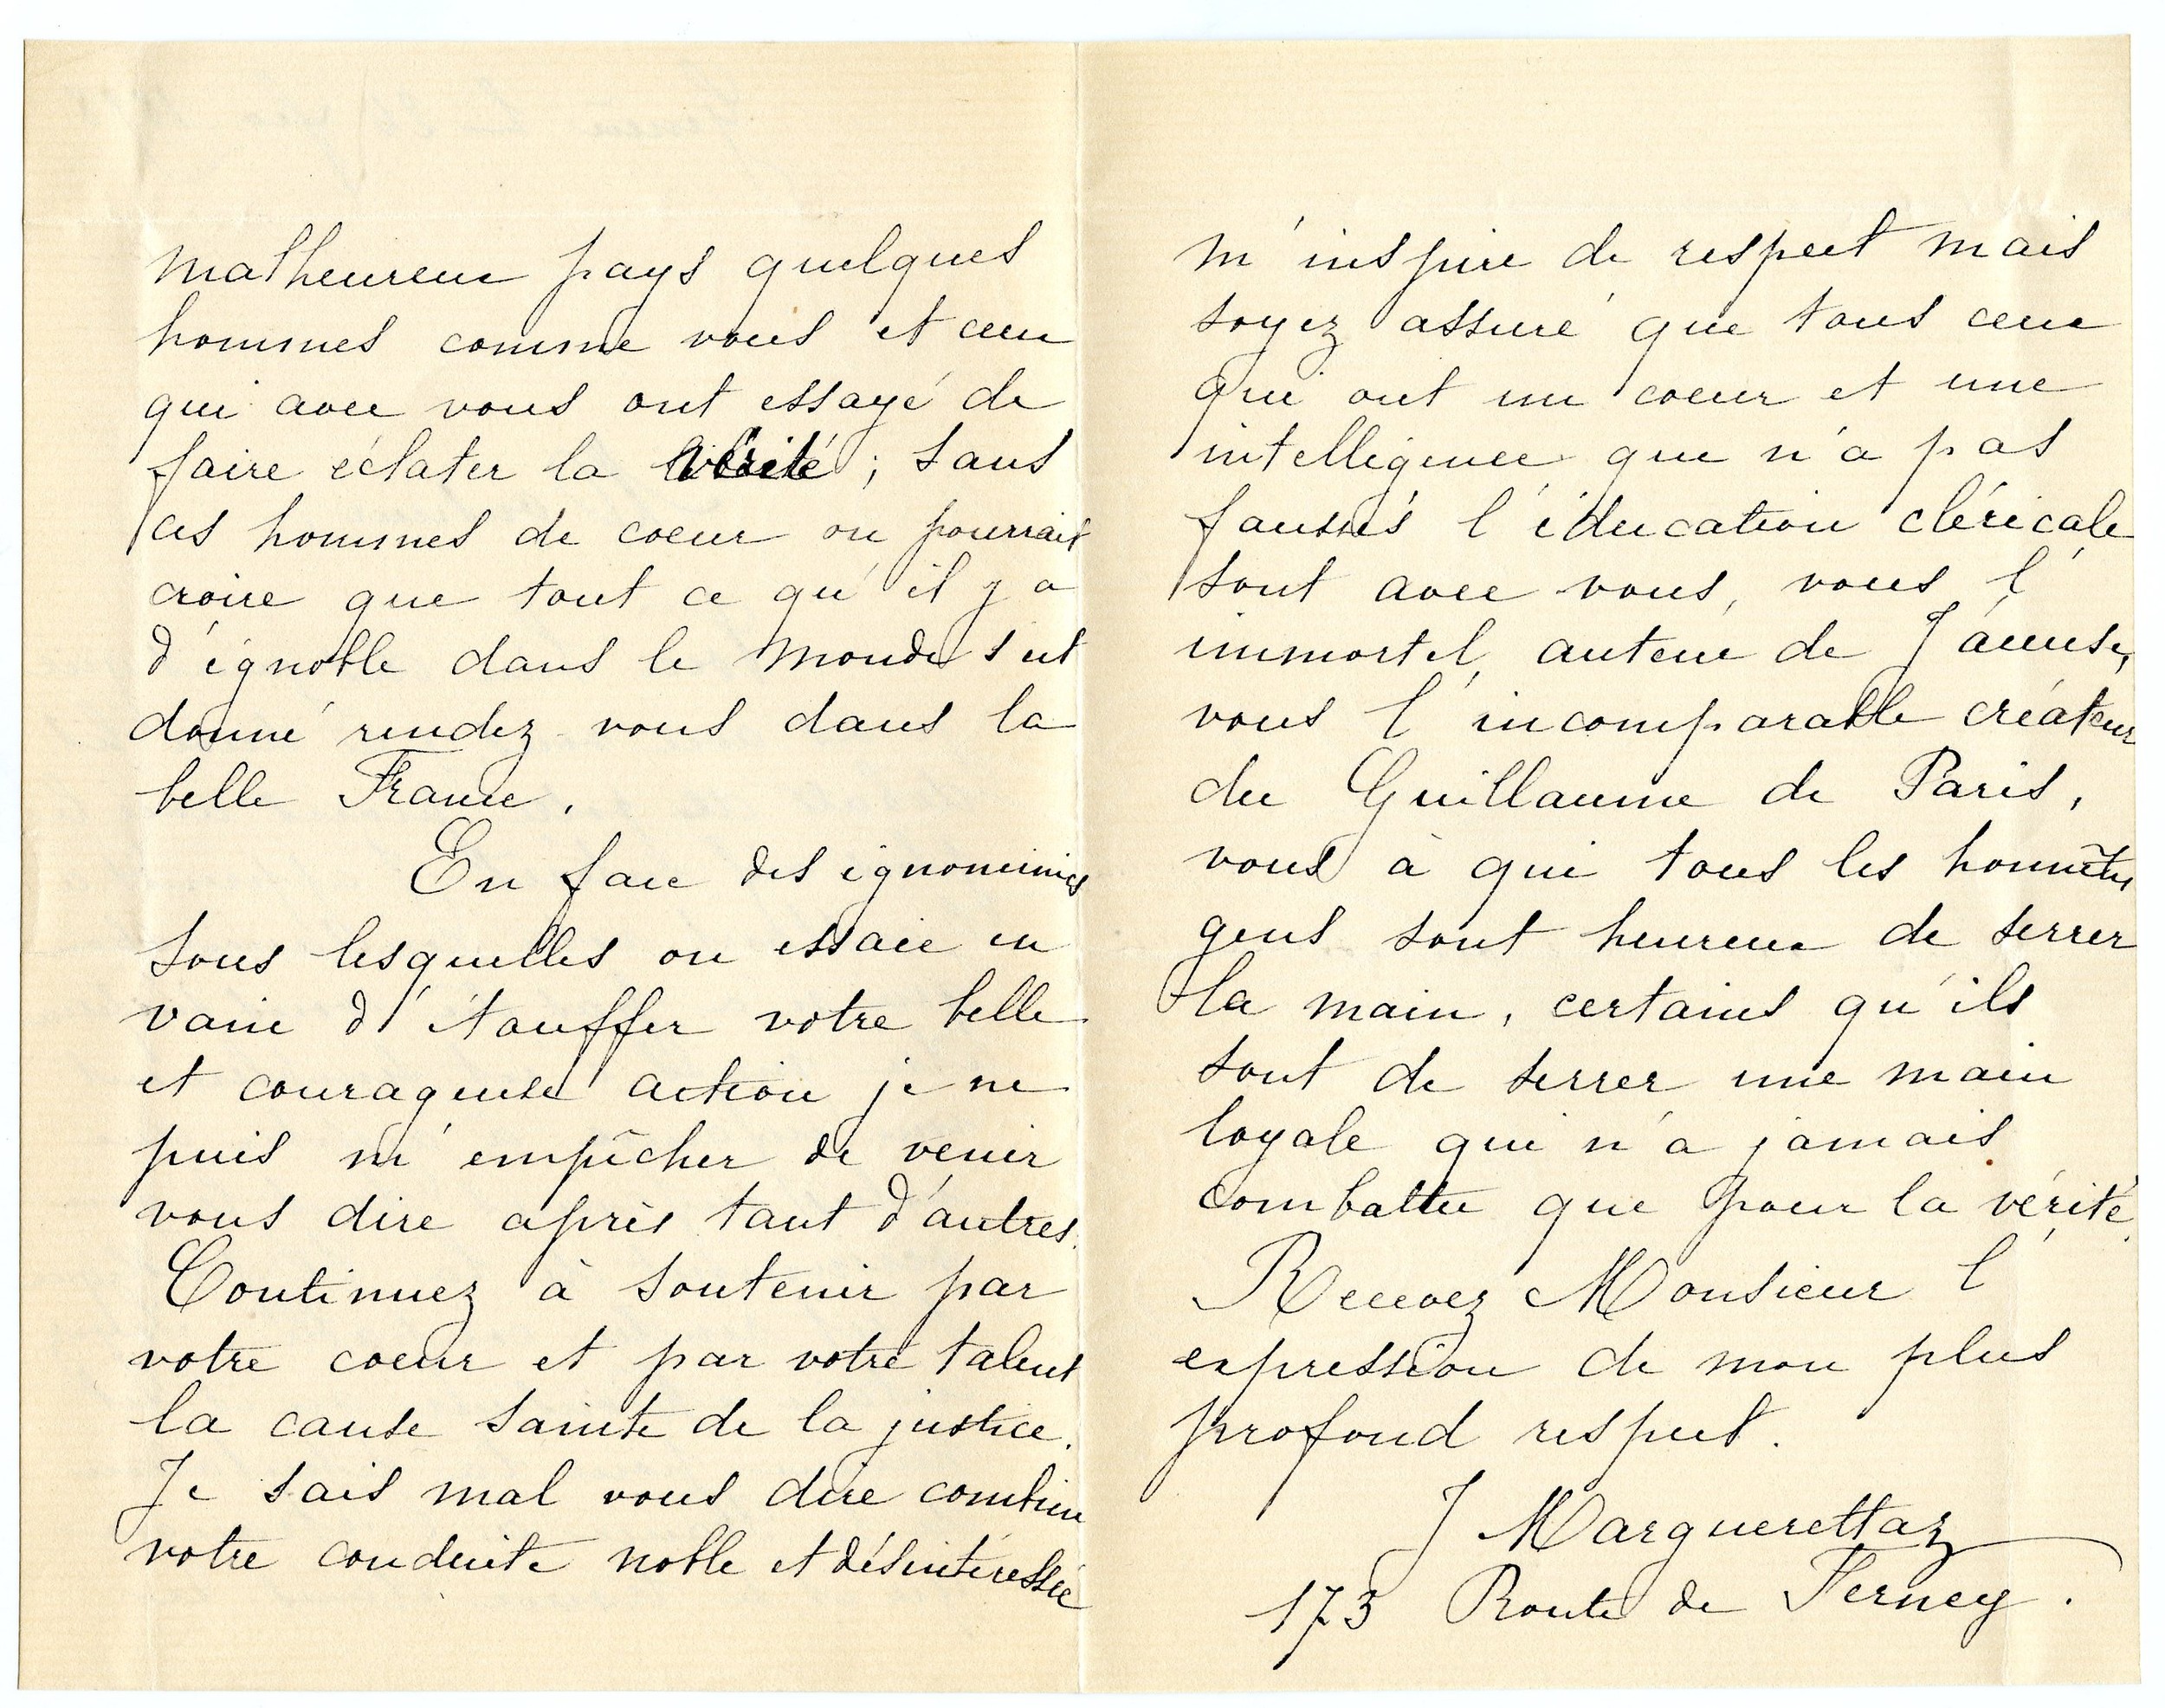 malheureux pays quelques
hommes comme vous et ceux
qui avec vous ont essayé de
faire éclater la vérité ; sans
ces hommes de coeur on pourrait
croire que tout ce qu'il y a
d'ignoble dans le monde s'est
donné rendez vous dans la
belle France.
En face des ignominies
sous lesquelles on essaie en
vain d'étouffer votre belle
et courageuse action je ne
puis m'empêcher de venir
vous dire après tant d'autres.
Continuez à soutenir par
votre coeur et par votre talent
la cause sainte de la justice.
Je sais mal vous dire combien
votre conduite noble et désintéressée
m'inspire de respect mais
soyez assuré que tous ceux
qui ont un coeur et une
intelligence que n'a pas
faussés l'éducation cléricale
sont avec vous, vous l'
immortel, auteur de J'accuse,
vous l'incomparable créateur
du Guillaume de Paris,
vous à qui tous les honnêtes
gens sont heureux de serrer
la main, certains qu'ils
sont de serrer une main
loyale qui n'a jamais
combattu que pour la vérité.
Recevez Monsieur l'
expression de mon plus
profond respect.
J Marguerettaz
173 Route de Ferney.